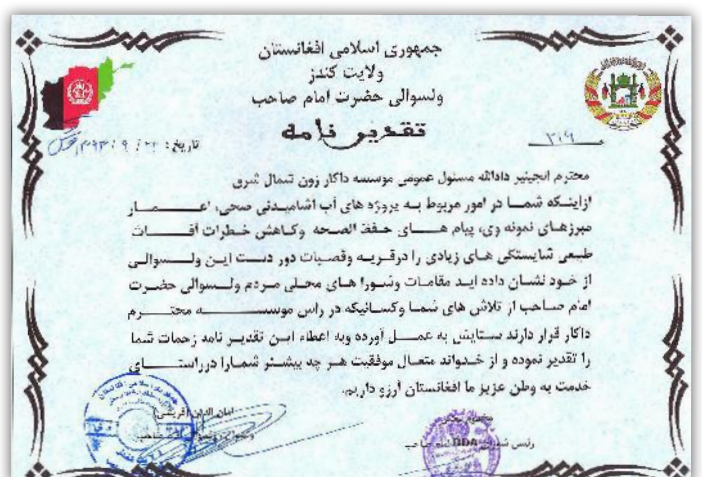 جمهوری اسلامی افغانستان
ولایت کندز
ولسوالی حضرت امام صاحب
تقدیر نامه
۳۱۹
تاریخ: ۲۲ / ۹ / ۱۳۹۳
محترم انجینیر دادالله مسئول عمومی موسسه داکار زون شمال شرق
ازاینکه شما در امور مربوط به پروژه های آب اشامیدنی صحی، اعمار
مبرزهای نمونه وی، پیام های حفظ الصحه وکاهش خطرات آفات
طبعی شایستگی های زیادی را درقریه وقصبات دور دست این ولسوالی
از خود نشان داده اید مقامات وشورا های محلی مردم ولسوالی حضرت
امام صاحب از تلاش های شما وکسانیکه در راس موسسه محترم
داکار قرار دارند ستایش به عمل آورده وبه اعطاء این تقدیر نامه زحمات شما
را تقدیر نموده و از خدواند متعال موفقیت هر چه بیشتر شمارا درراستای
خدمت به وطن عزیز ما افغانستان آرزو داریم.
امان الدین (قریشی)
رئیس شورای DDA امام صاحب